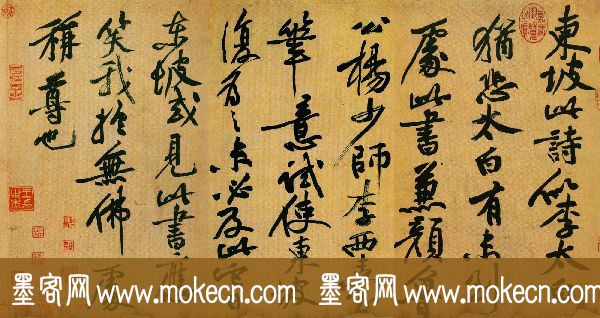 東坡此詩似李太白
猶恐太白有未到
處此書兼顏魯
公楊少師李西臺
筆意試使東坡
復為之未必及此它
東坡或見此書應
笑我於無佛處
稱尊也
墨客网 www.mokecn.com 墨客网 www.mokecn.com